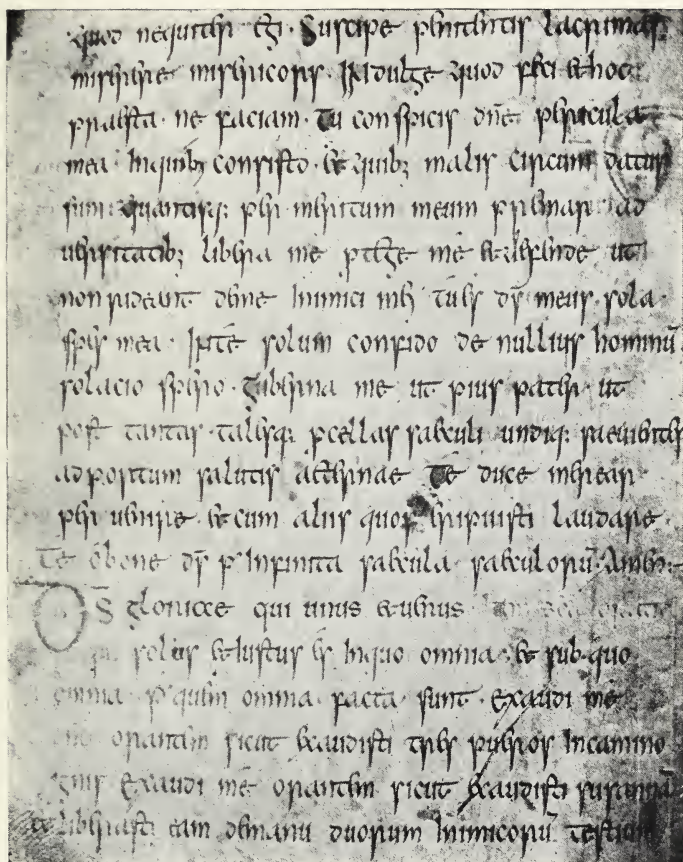 quod nequiter egi· Suscipe penitentis lacrimas·
miserere misericors· Indulge quod feci et hoc
praesta· ne faciam· tu conspicis dne pericula
mea· Inquib; consisto· et quib; malis circum datus
sum· quantisq; per meritum meum premar· ad
uersitatib; libera me ptege me et defende ut
non rideant de me Inimici mei tu es ds meus· sola
spes mea· In te solum confido de nullius hominū
solacio spero· guberna me ut pius pater· ut
post tantas· talesq; pcellas saeculi undiq; saeuientes
ad portum salutis aeternae te duce merear
peruenire· et cum aliis quos eripuisti laudare·
te o bone ds p Infinita saecula saeculorū· Amen:
DS gloriae qui unus et uerus
solus et Iustus es Inquo omnia· et sub quo
omnia p quem omnia facta sunt· Exaudi me
orantem sicut exaudisti tres pueros Incamino
ignis Exaudi me orantem sicut exaudisti susannā
et liberasti eam demanu duorum Inimicorū testium